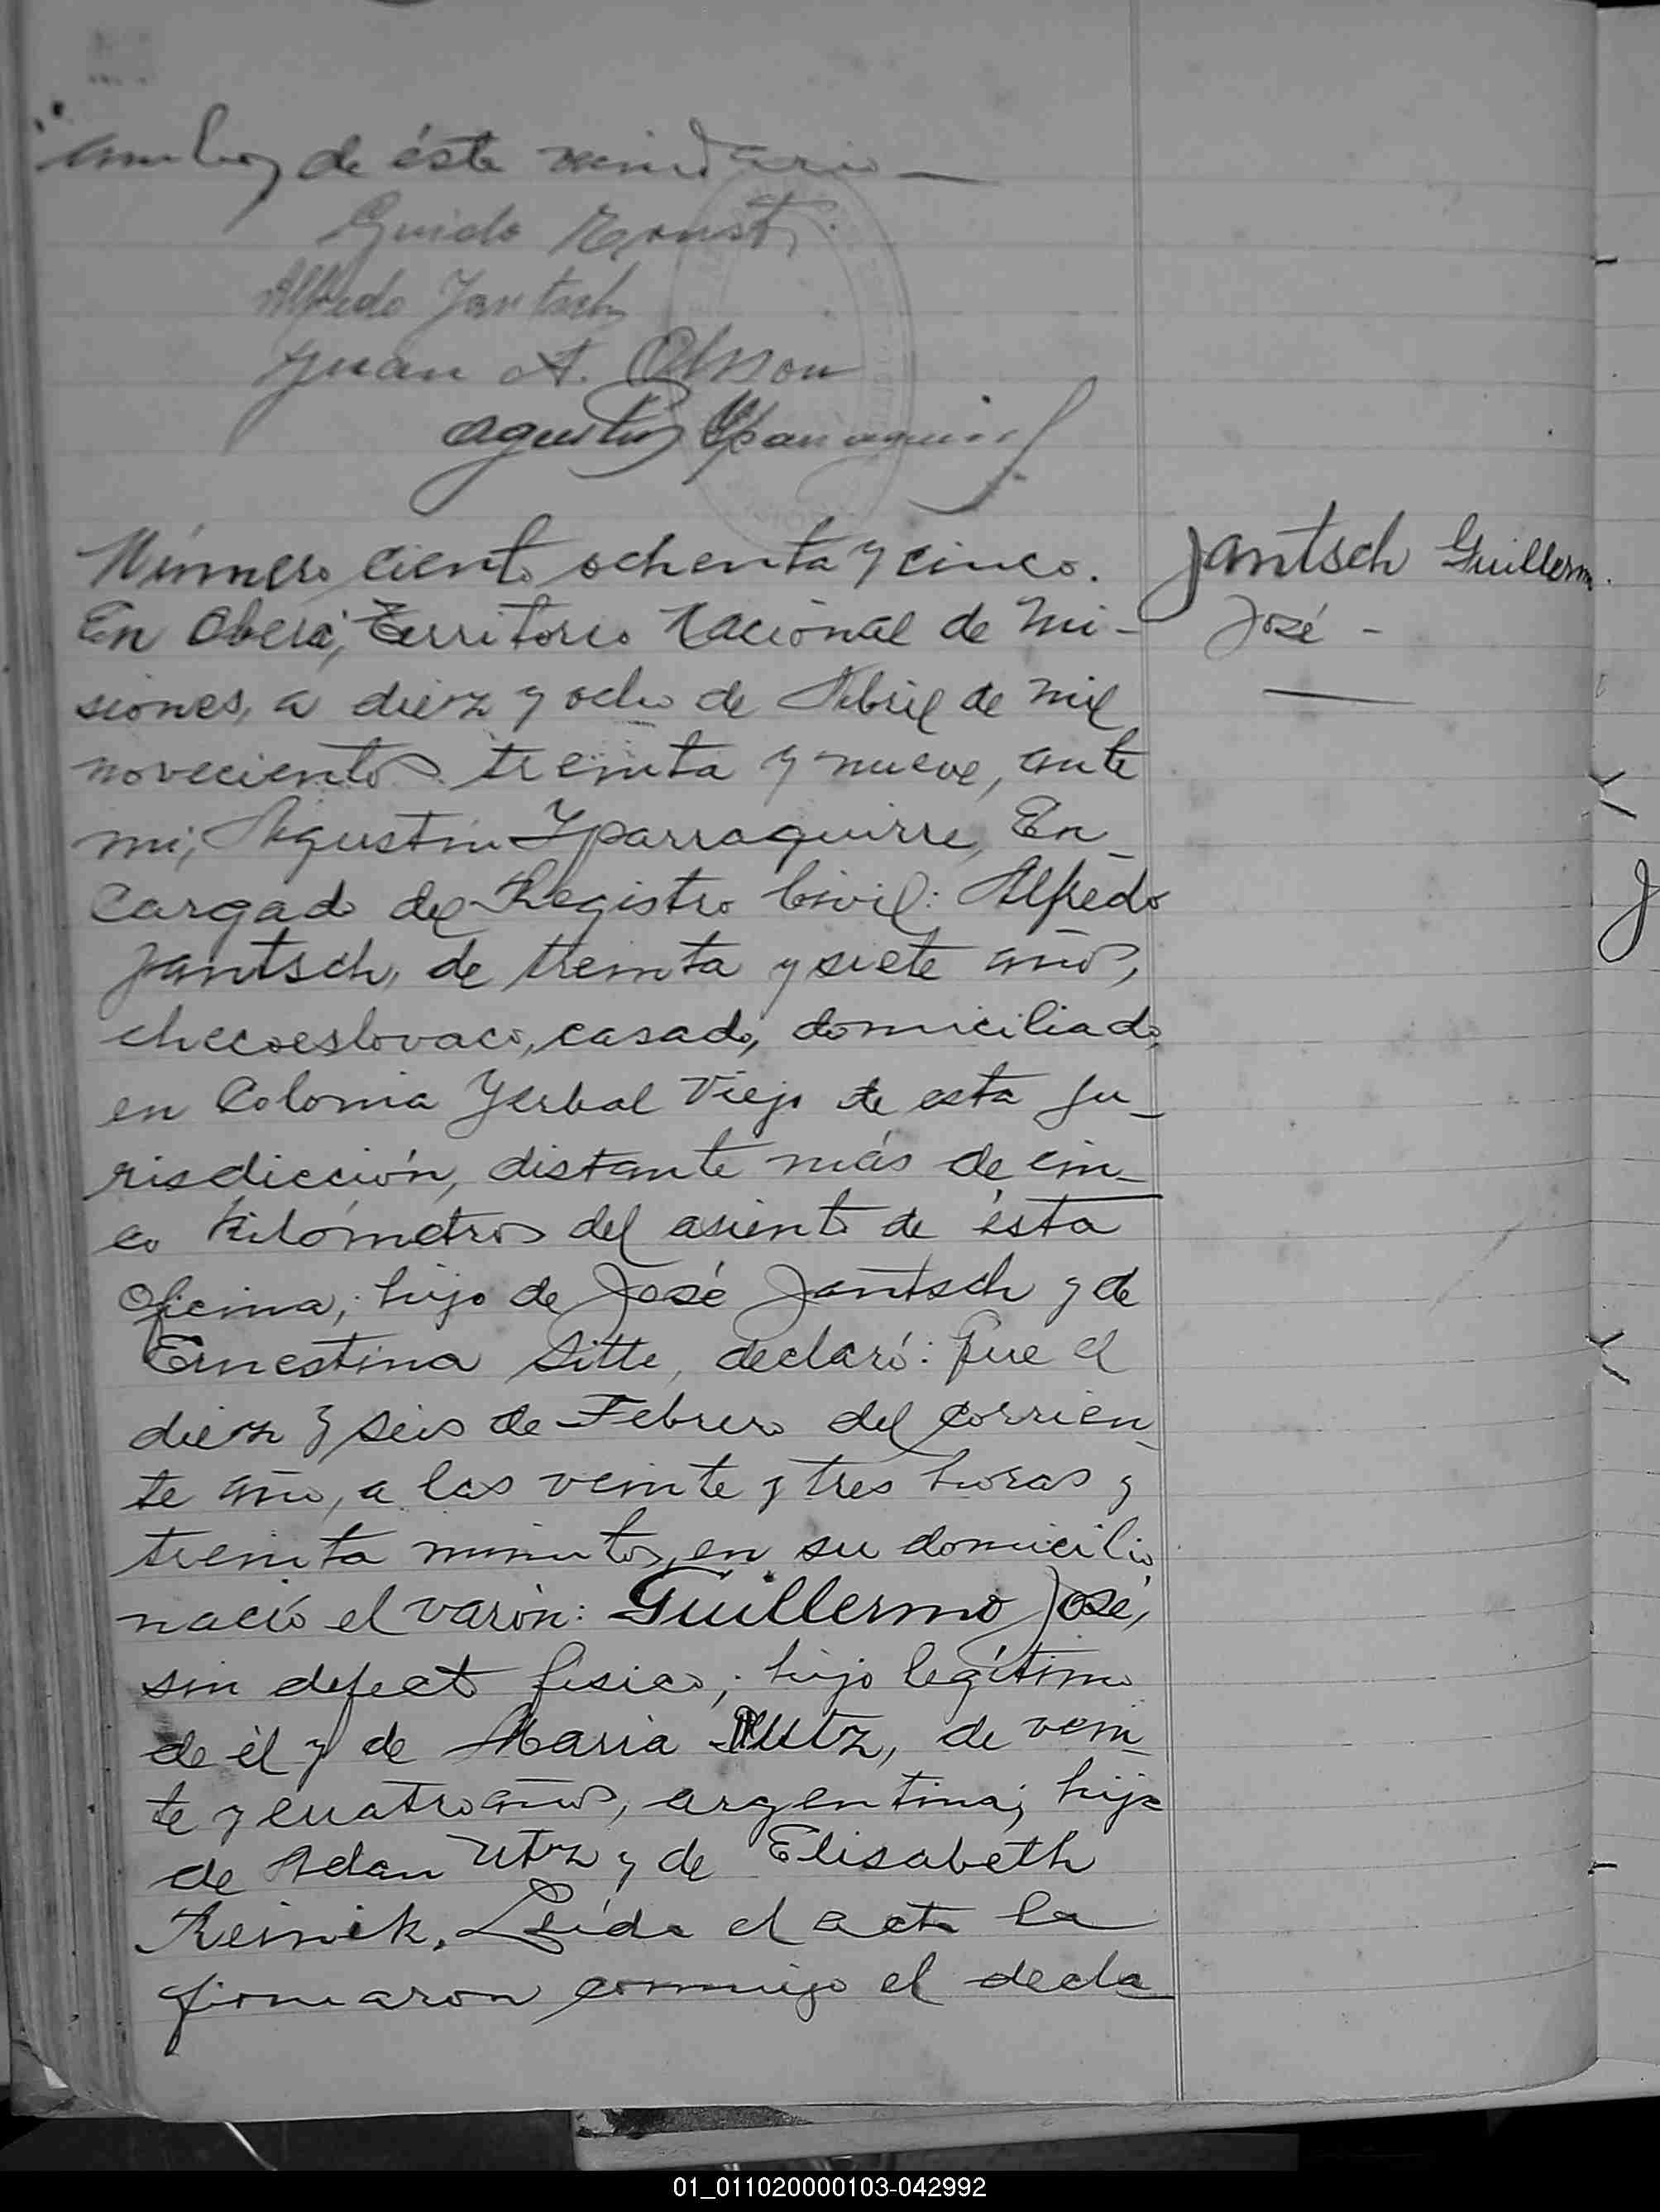 ambos de éste vecindario —
Guido
Alfredo Jantsch
Juan A. Olsson
Agustín Yparraguirre
Número ciento ochenta y cinco.
Jantsch Guillermo
José -
En Oberá, Territorio Nacional de Mi-
siones, a diez y ocho de Abril de mil
novecientos treinta y nueve, ante
mi, Agustín Yparraguirre, En-
cargado del Registro Civil: Alfredo
Jantsch, de treinta y siete años,
checoeslovaco, casado, domiciliado
en Colonia Yerbal Viejo de esta ju-
risdicción, distante más de cin-
co kilómetros del asiento de ésta
Oficina; hijo de José Jantsch y de
Ernestina Sitte, declaró: Que el
diez y seis de Febrero del corrien-
te año, a las veinte y tres horas y
treinta minutos, en su domicilio
nació el varón: Guillermo José,
sin defecto físico; hijo legítimo
de él y de María Utz, de vein-
te y cuatro años, argentina; hija
de Adan Utz y de Elisabeth
Reinik. Leída el acta la
firmaron conmigo el decla-
01_011020000103-042992